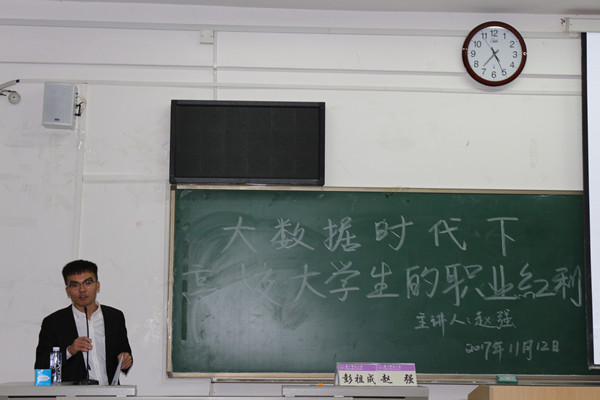 12 1 2 3 4 5 6 7 8 9 10 11
大数据时代下
高校大学生的职业红利
主讲人:赵强
2017年11月12日
彭祖成 赵 强